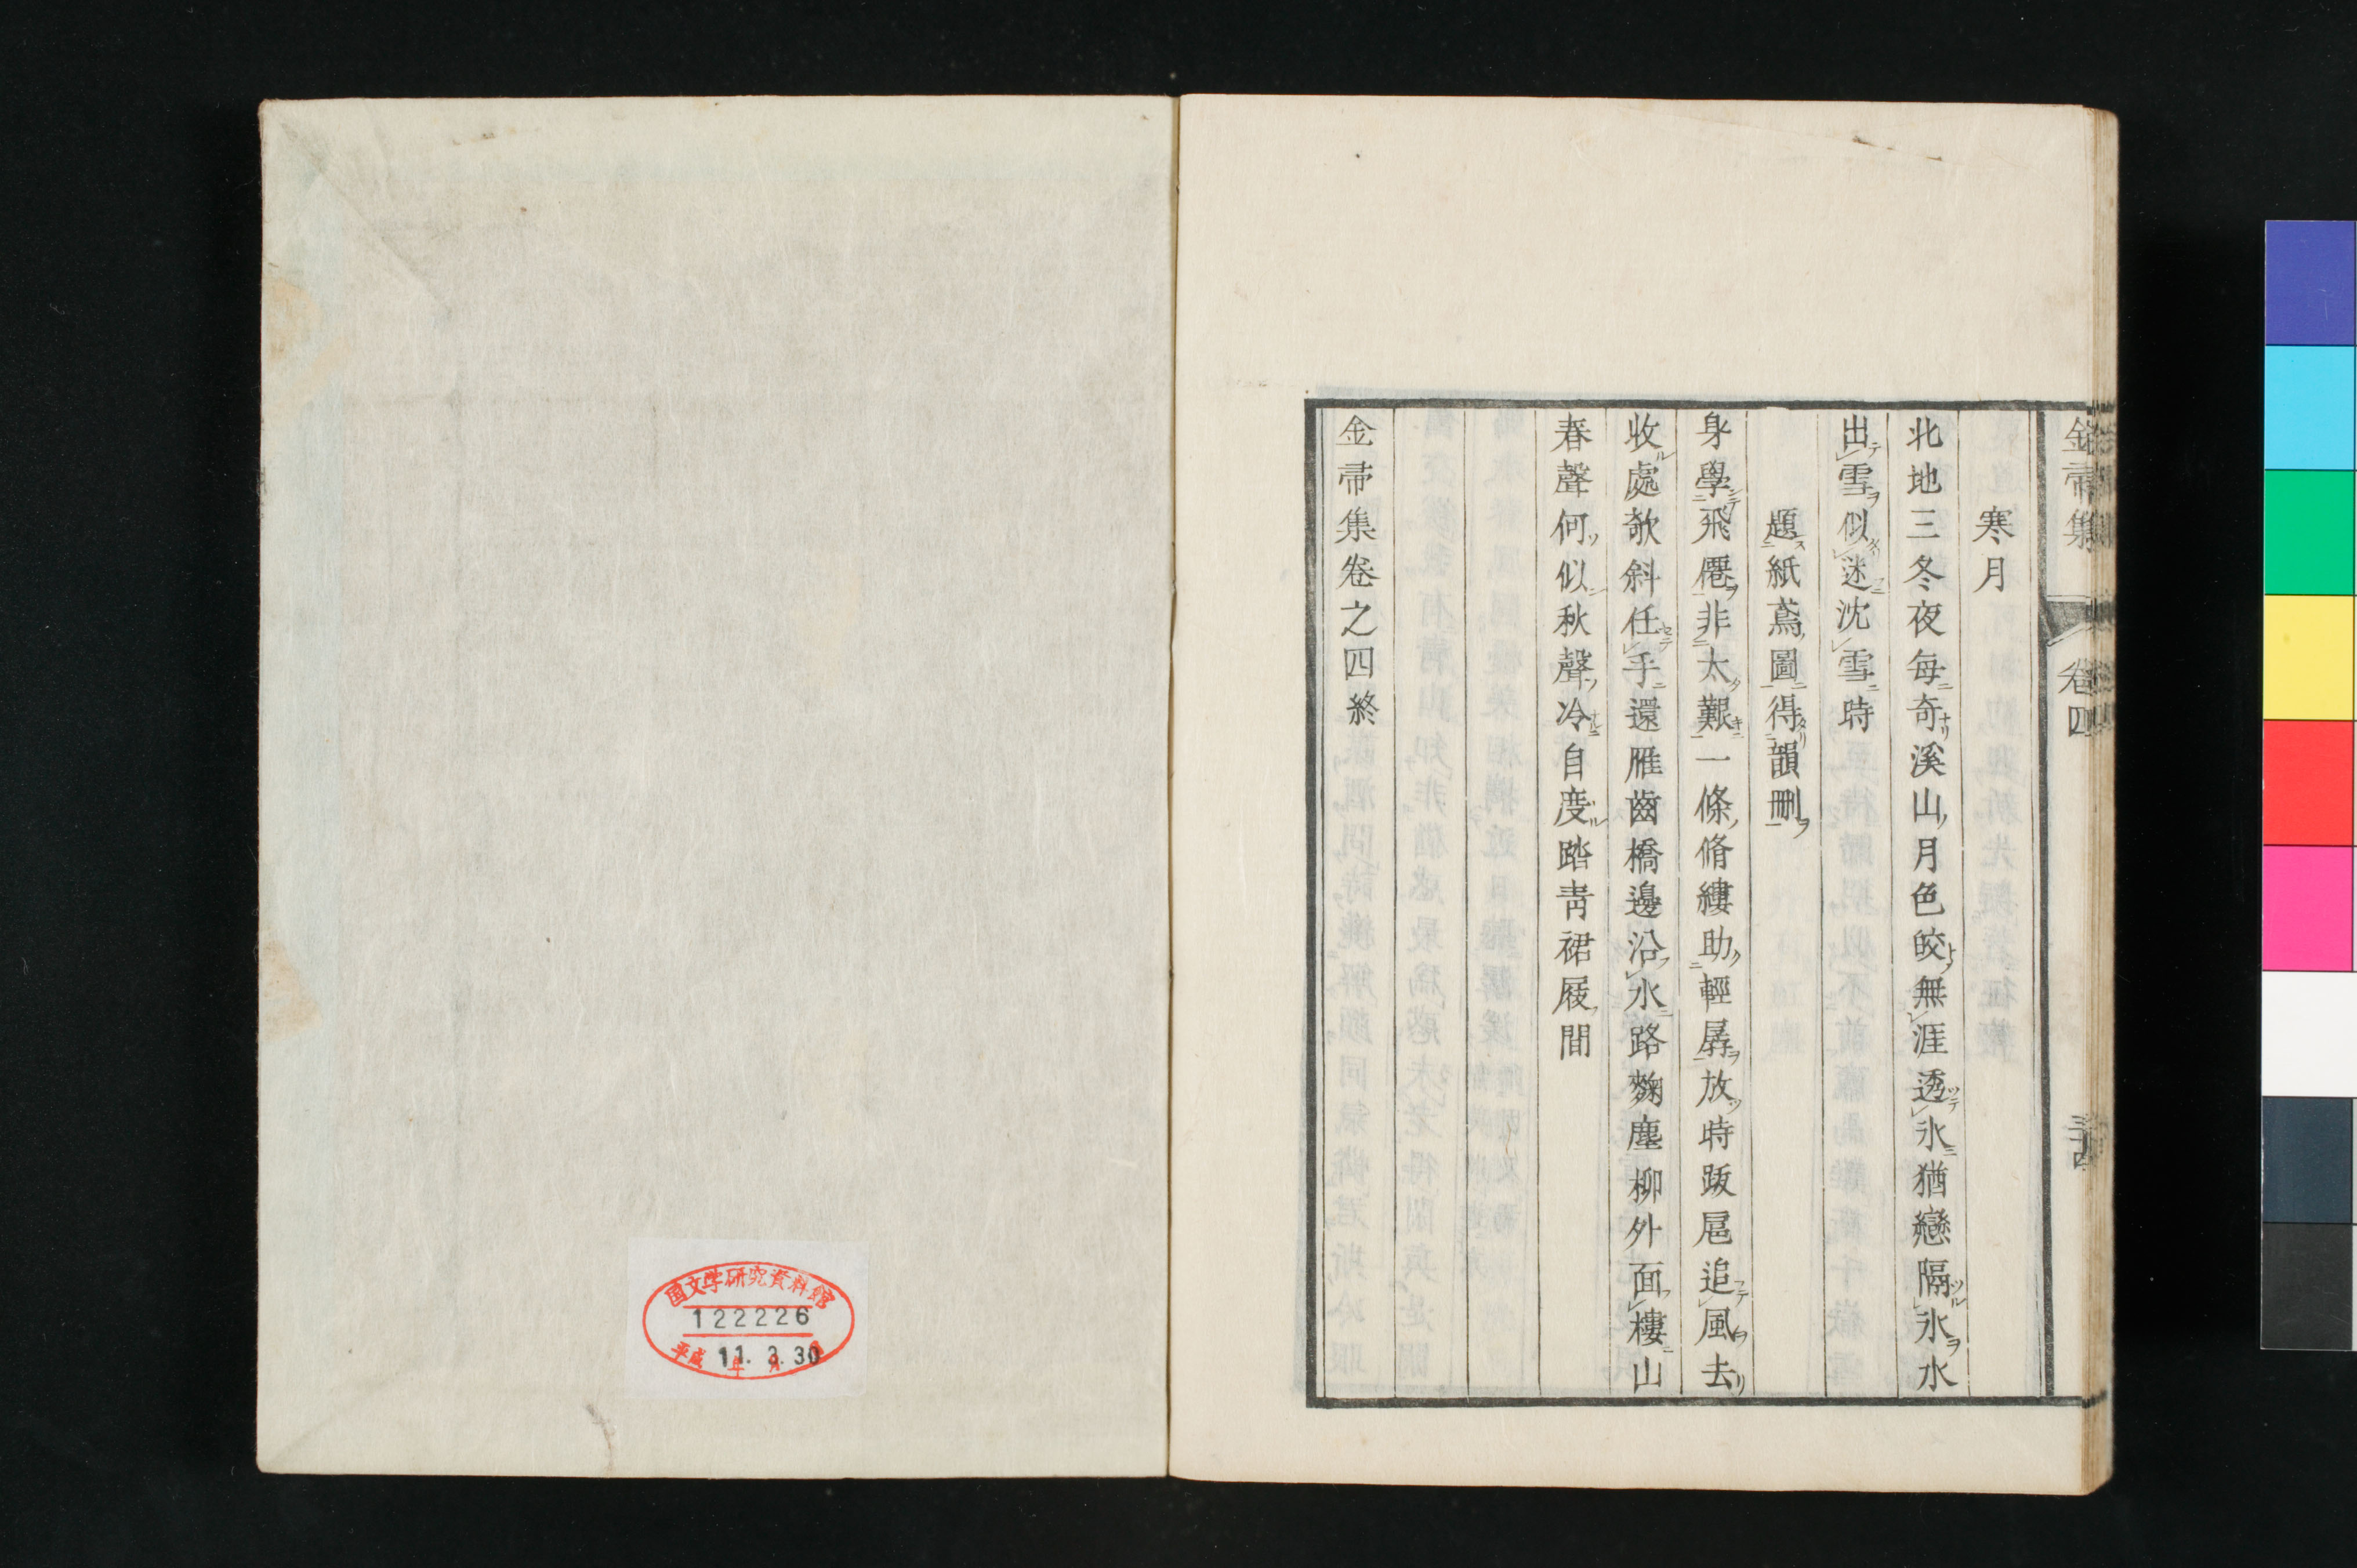 金帚集
卷四
寒月
北地三冬夜每奇溪山月色皎無涯透氷猶戀隔氷水
出雪似迷沈雪時
題紙鳶圖得韻刪
身學飛僊非太艱一條脩縷助輕孱放時跋扈追風去
收處欹斜任手還雁齒橋邊沿水路麴塵柳外面樓山
春聲何似秋聲冷自度踏靑裙屐間
金帚集卷之四終
国文学研究資料館
122226
平成 11年 3月 30日